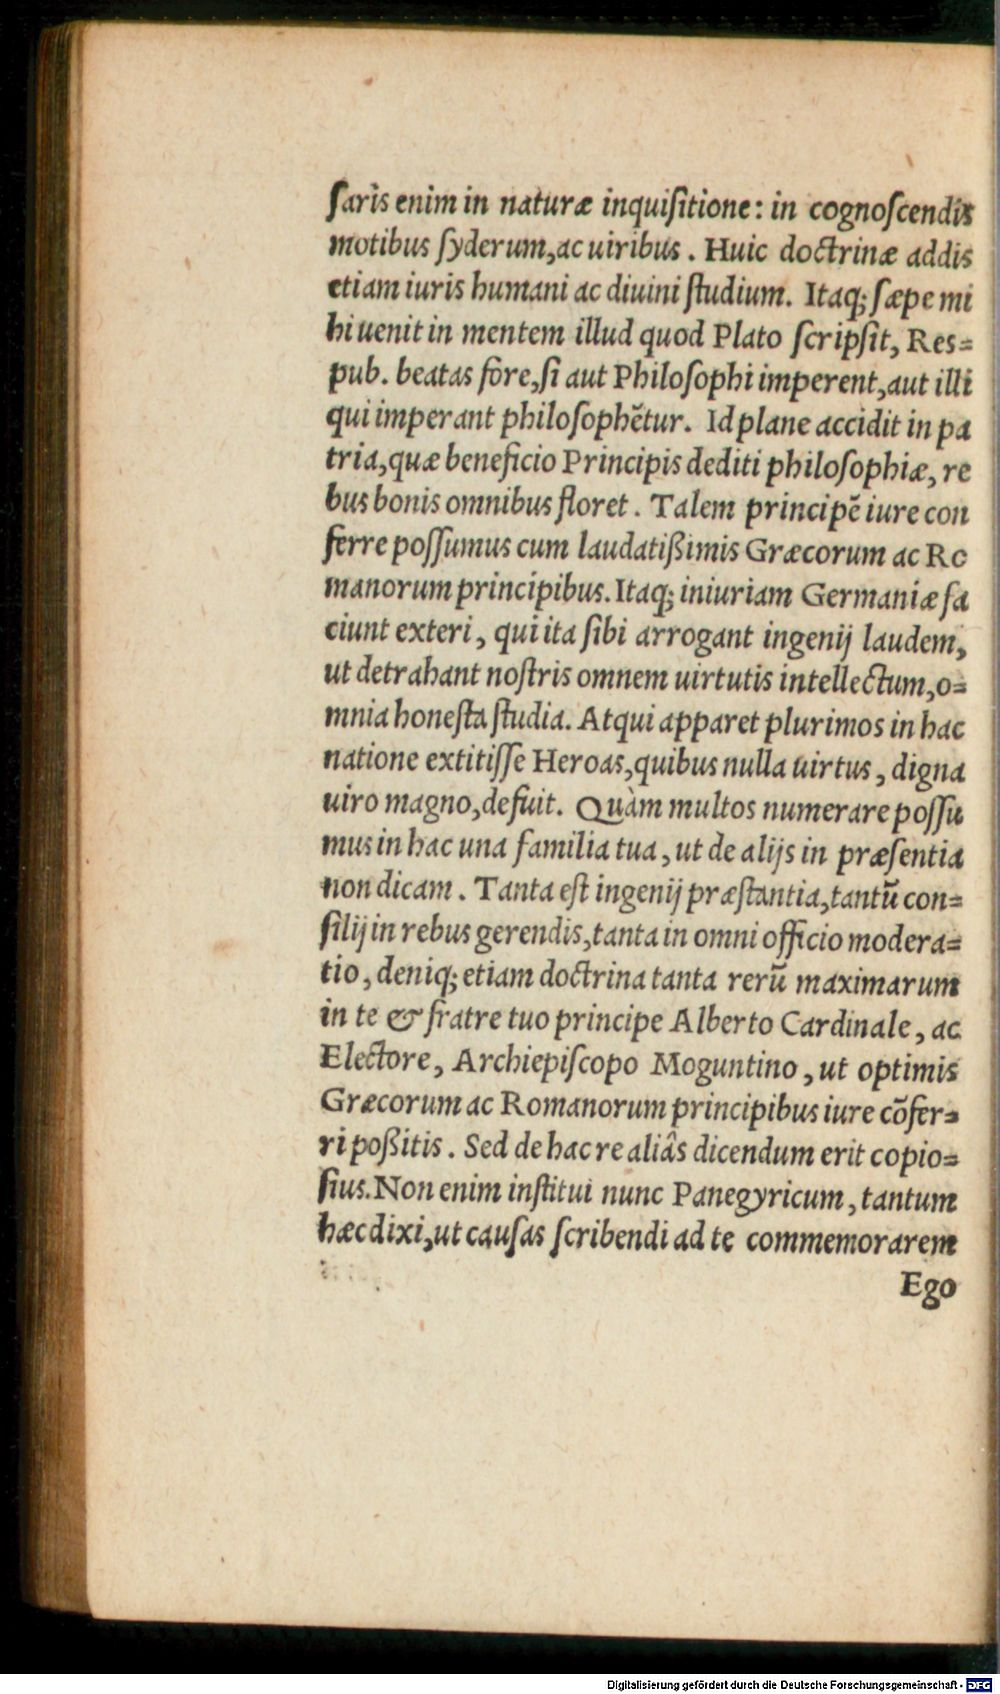 ſaris enim in naturæ inquiſitione: in cognoſcendis
motibus ſyderum, ac uiribus. Huic doctrinæ addis
etiam iuris humani ac diuini ſtudium. Itaq; ſæpe mi
hi uenit in mentem illud quod Plato ſcripſit, Reſ=
pub. beatas fore, ſi aut Philoſophi imperent, aut illi
qui imperant philoſophẽtur. Id plane accidit in pa
tria, quæ beneficio Principis dediti philoſophiæ, re
bus bonis omnibus floret. Talem principẽ iure con
ferre poſſumus cum laudatißimis Græcorum ac Ro
manorum principibus. Itaq; iniuriam Germaniæ fa
ciunt exteri, qui ita ſibi arrogant ingenij laudem,
ut detrahant noſtris omnem uirtutis intellectum, o=
mnia honeſta ſtudia. Atqui apparet plurimos in hac
natione extitiſſe Heroas, quibus nulla uirtus, digna
uiro magno, defuit. Quàm multos numerare poſſu
mus in hac una familia tua, ut de alijs in præſentia
non dicam. Tanta eſt ingenij præſtantia, tantũ con=
ſilij in rebus gerendis, tanta in omni officio modera=
tio, deniq; etiam doctrina tanta rerũ maximarum
in te & fratre tuo principe Alberto Cardinale, ac
Electore, Archiepiſcopo Moguntino, ut optimis
Græcorum ac Romanorum principibus iure cõfer=
ri poßitis. Sed de hac re aliâs dicendum erit copio=
ſius. Non enim inſtitui nunc Panegyricum, tantum
hæc dixi, ut cauſas ſcribendi ad te commemorarem
Ego
Digitalisierung gefördert durch die Deutsche Forschungsgemeinschaft - DFG